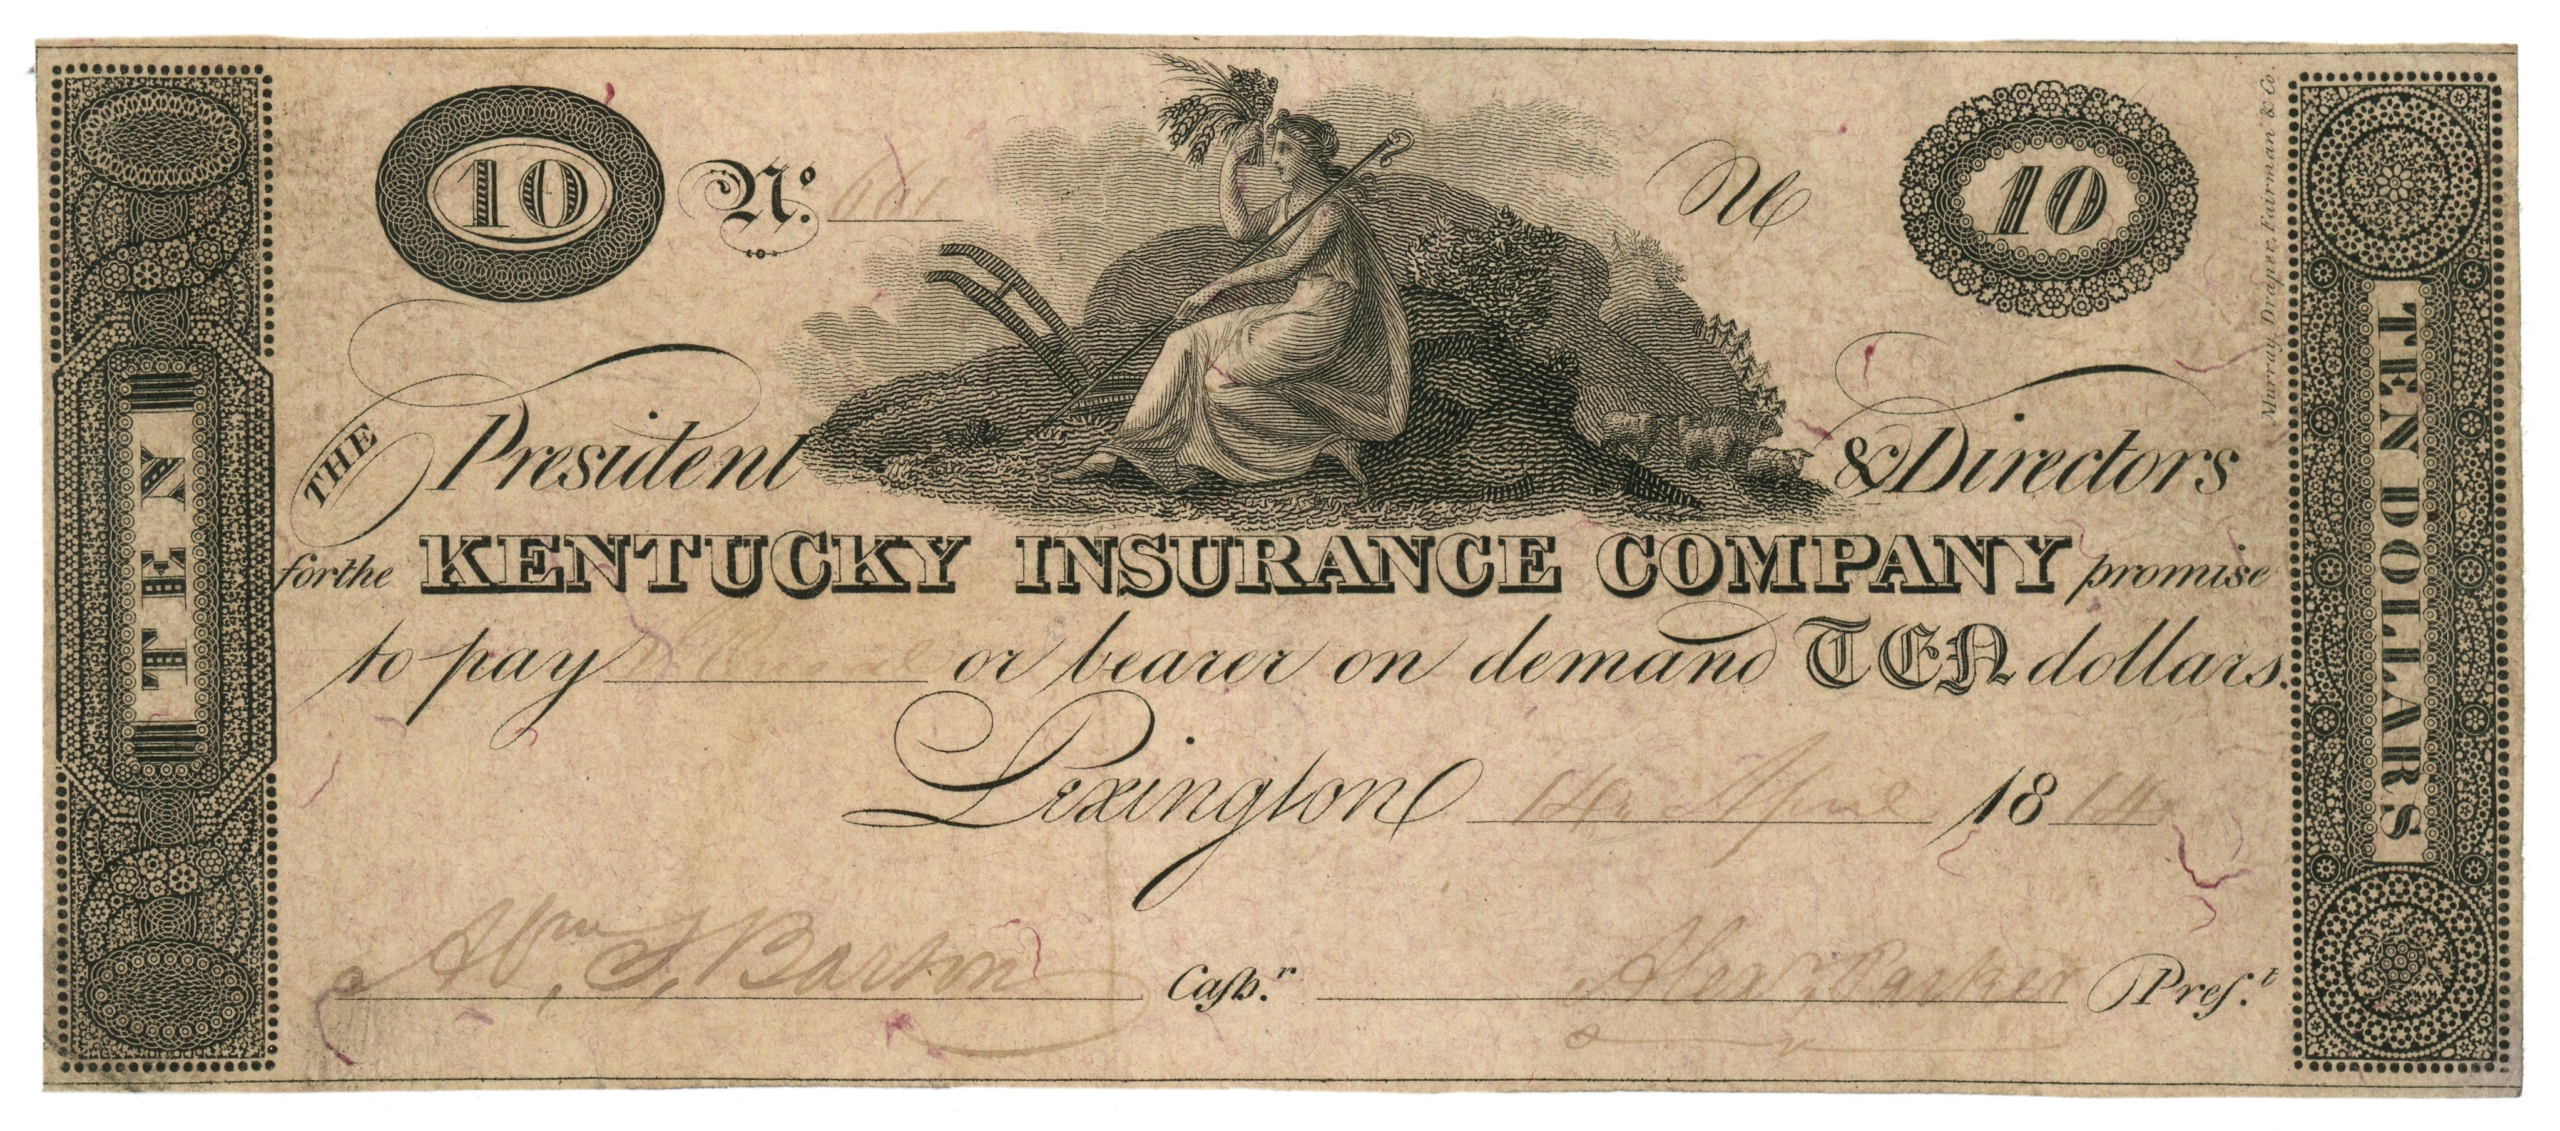 10 Nº. 661 10
THE President & Directors
for the KENTUCKY INSURANCE COMPANY promise
to pay or bearer on demand TEN dollars.
Lexington 14 April 1814
Wm. S. Barton Cash.r Alexr. Parker Pres.t
TEN
TEN DOLLARS
Murray, Draper, Fairman & Co.